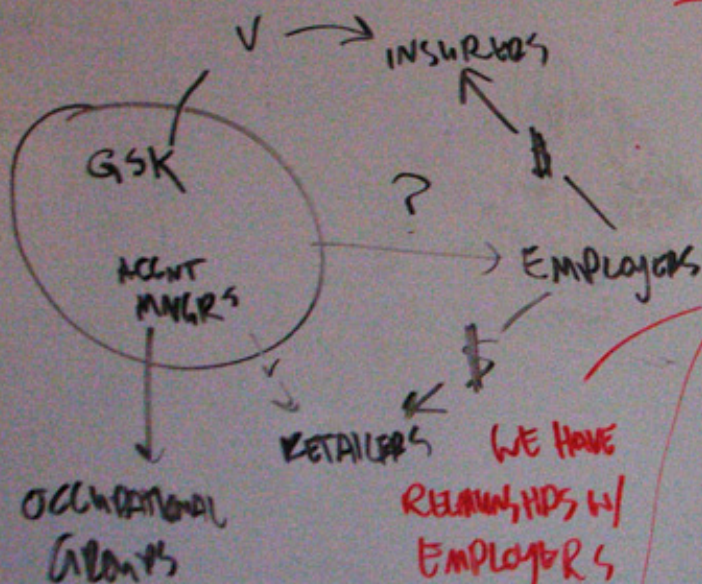 V
INSURERS
GSK
$
?
ACCNT
MNGRS
EMPLOYERS
V
$
RETAILERS
WE HAVE
OCCUPATIONAL
GROUPS
RELATIONSHIPS W/
EMPLOYERS